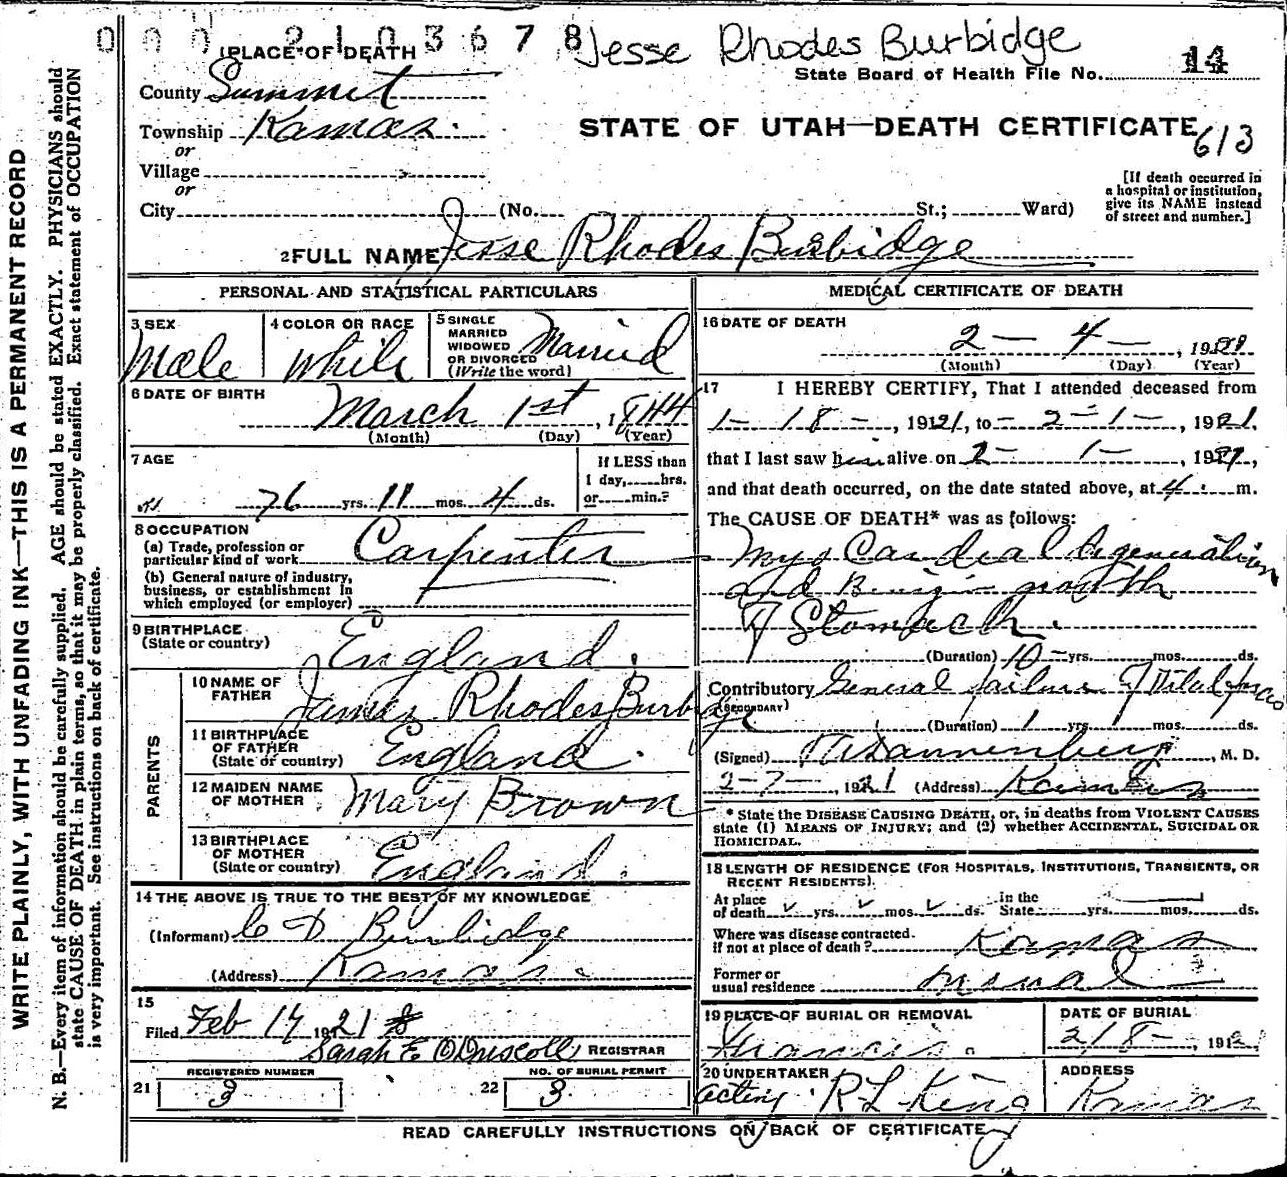 0 0 0 2 1 0 3 6 7 8 Jesse Rhodes Burbidge
1 PLACE OF DEATH
State Board of Health File No. 14
County Summit
Township Kamas.
STATE OF UTAH—DEATH CERTIFICATE
613
or
Village
or
City (No. St.; Ward)
[If death occurred in
a hospital or institution,
give its NAME instead
of street and number.]
2 FULL NAME Jesse Rhodes Burbidge
PERSONAL AND STATISTICAL PARTICULARS
3 SEX Male
4 COLOR OR RACE White
5 SINGLE
MARRIED
WIDOWED
OR DIVORCED
(Write the word) Married
6 DATE OF BIRTH
March 1st, 1844
(Month) (Day) (Year)
7 AGE
76 yrs. 11 mos. 4 ds.
If LESS than
1 day, hrs.
or min.?
8 OCCUPATION
(a) Trade, profession or
particular kind of work Carpenter
(b) General nature of industry,
business, or establishment in
which employed (or employer)
9 BIRTHPLACE
(State or country) England.
PARENTS
10 NAME OF
FATHER James Rhodes Burbidge
11 BIRTHPLACE
OF FATHER
(State or country) England.
12 MAIDEN NAME
OF MOTHER Mary Brown
13 BIRTHPLACE
OF MOTHER
(State or country) England.
14 THE ABOVE IS TRUE TO THE BEST OF MY KNOWLEDGE
(Informant) C D Burbidge
(Address) Kamas.
15
Filed Feb 17 1921
Sarah E O'Driscoll, REGISTRAR
REGISTERED NUMBER
21 3
NO. OF BURIAL PERMIT
22 3
MEDICAL CERTIFICATE OF DEATH
16 DATE OF DEATH
2 — 4 —, 1921
(Month) (Day) (Year)
17 I HEREBY CERTIFY, That I attended deceased from
1 - 18 -, 1921, to 2 - 1 -, 1921,
that I last saw him alive on 2 - 1 -, 1921,
and that death occurred, on the date stated above, at 4 m.
The CAUSE OF DEATH* was as follows:
Myo Cardeal degeneration
and Benign growth
of Stomach.
(Duration) 10 yrs. mos. ds.
Contributory General failure of Vital
(SECONDARY)
(Duration) 1 yrs. mos. ds.
(Signed) Dannenberg, M. D.
2-7-, 1921 (Address) Kamas
* State the DISEASE CAUSING DEATH, or, in deaths from VIOLENT CAUSES
state (1) MEANS OF INJURY; and (2) whether ACCIDENTAL, SUICIDAL OR
HOMICIDAL.
18 LENGTH OF RESIDENCE (FOR HOSPITALS, INSTITUTIONS, TRANSIENTS, OR
RECENT RESIDENTS).
At place
of death yrs. mos. ds. in the
State yrs. mos. ds.
Where was disease contracted.
if not at place of death? Kamas
Former or
usual residence
19 PLACE OF BURIAL OR REMOVAL
Francis.
DATE OF BURIAL
2/8 -, 192
20 UNDERTAKER
acting R L King
ADDRESS
Kamas
READ CAREFULLY INSTRUCTIONS ON BACK OF CERTIFICATE
WRITE PLAINLY, WITH UNFADING INK—THIS IS A PERMANENT RECORD
N. B.—Every item of information should be carefully supplied. AGE should be stated EXACTLY. PHYSICIANS should
state CAUSE OF DEATH in plain terms, so that it may be properly classified. Exact statement of OCCUPATION
is very important. See instructions on back of certificate.